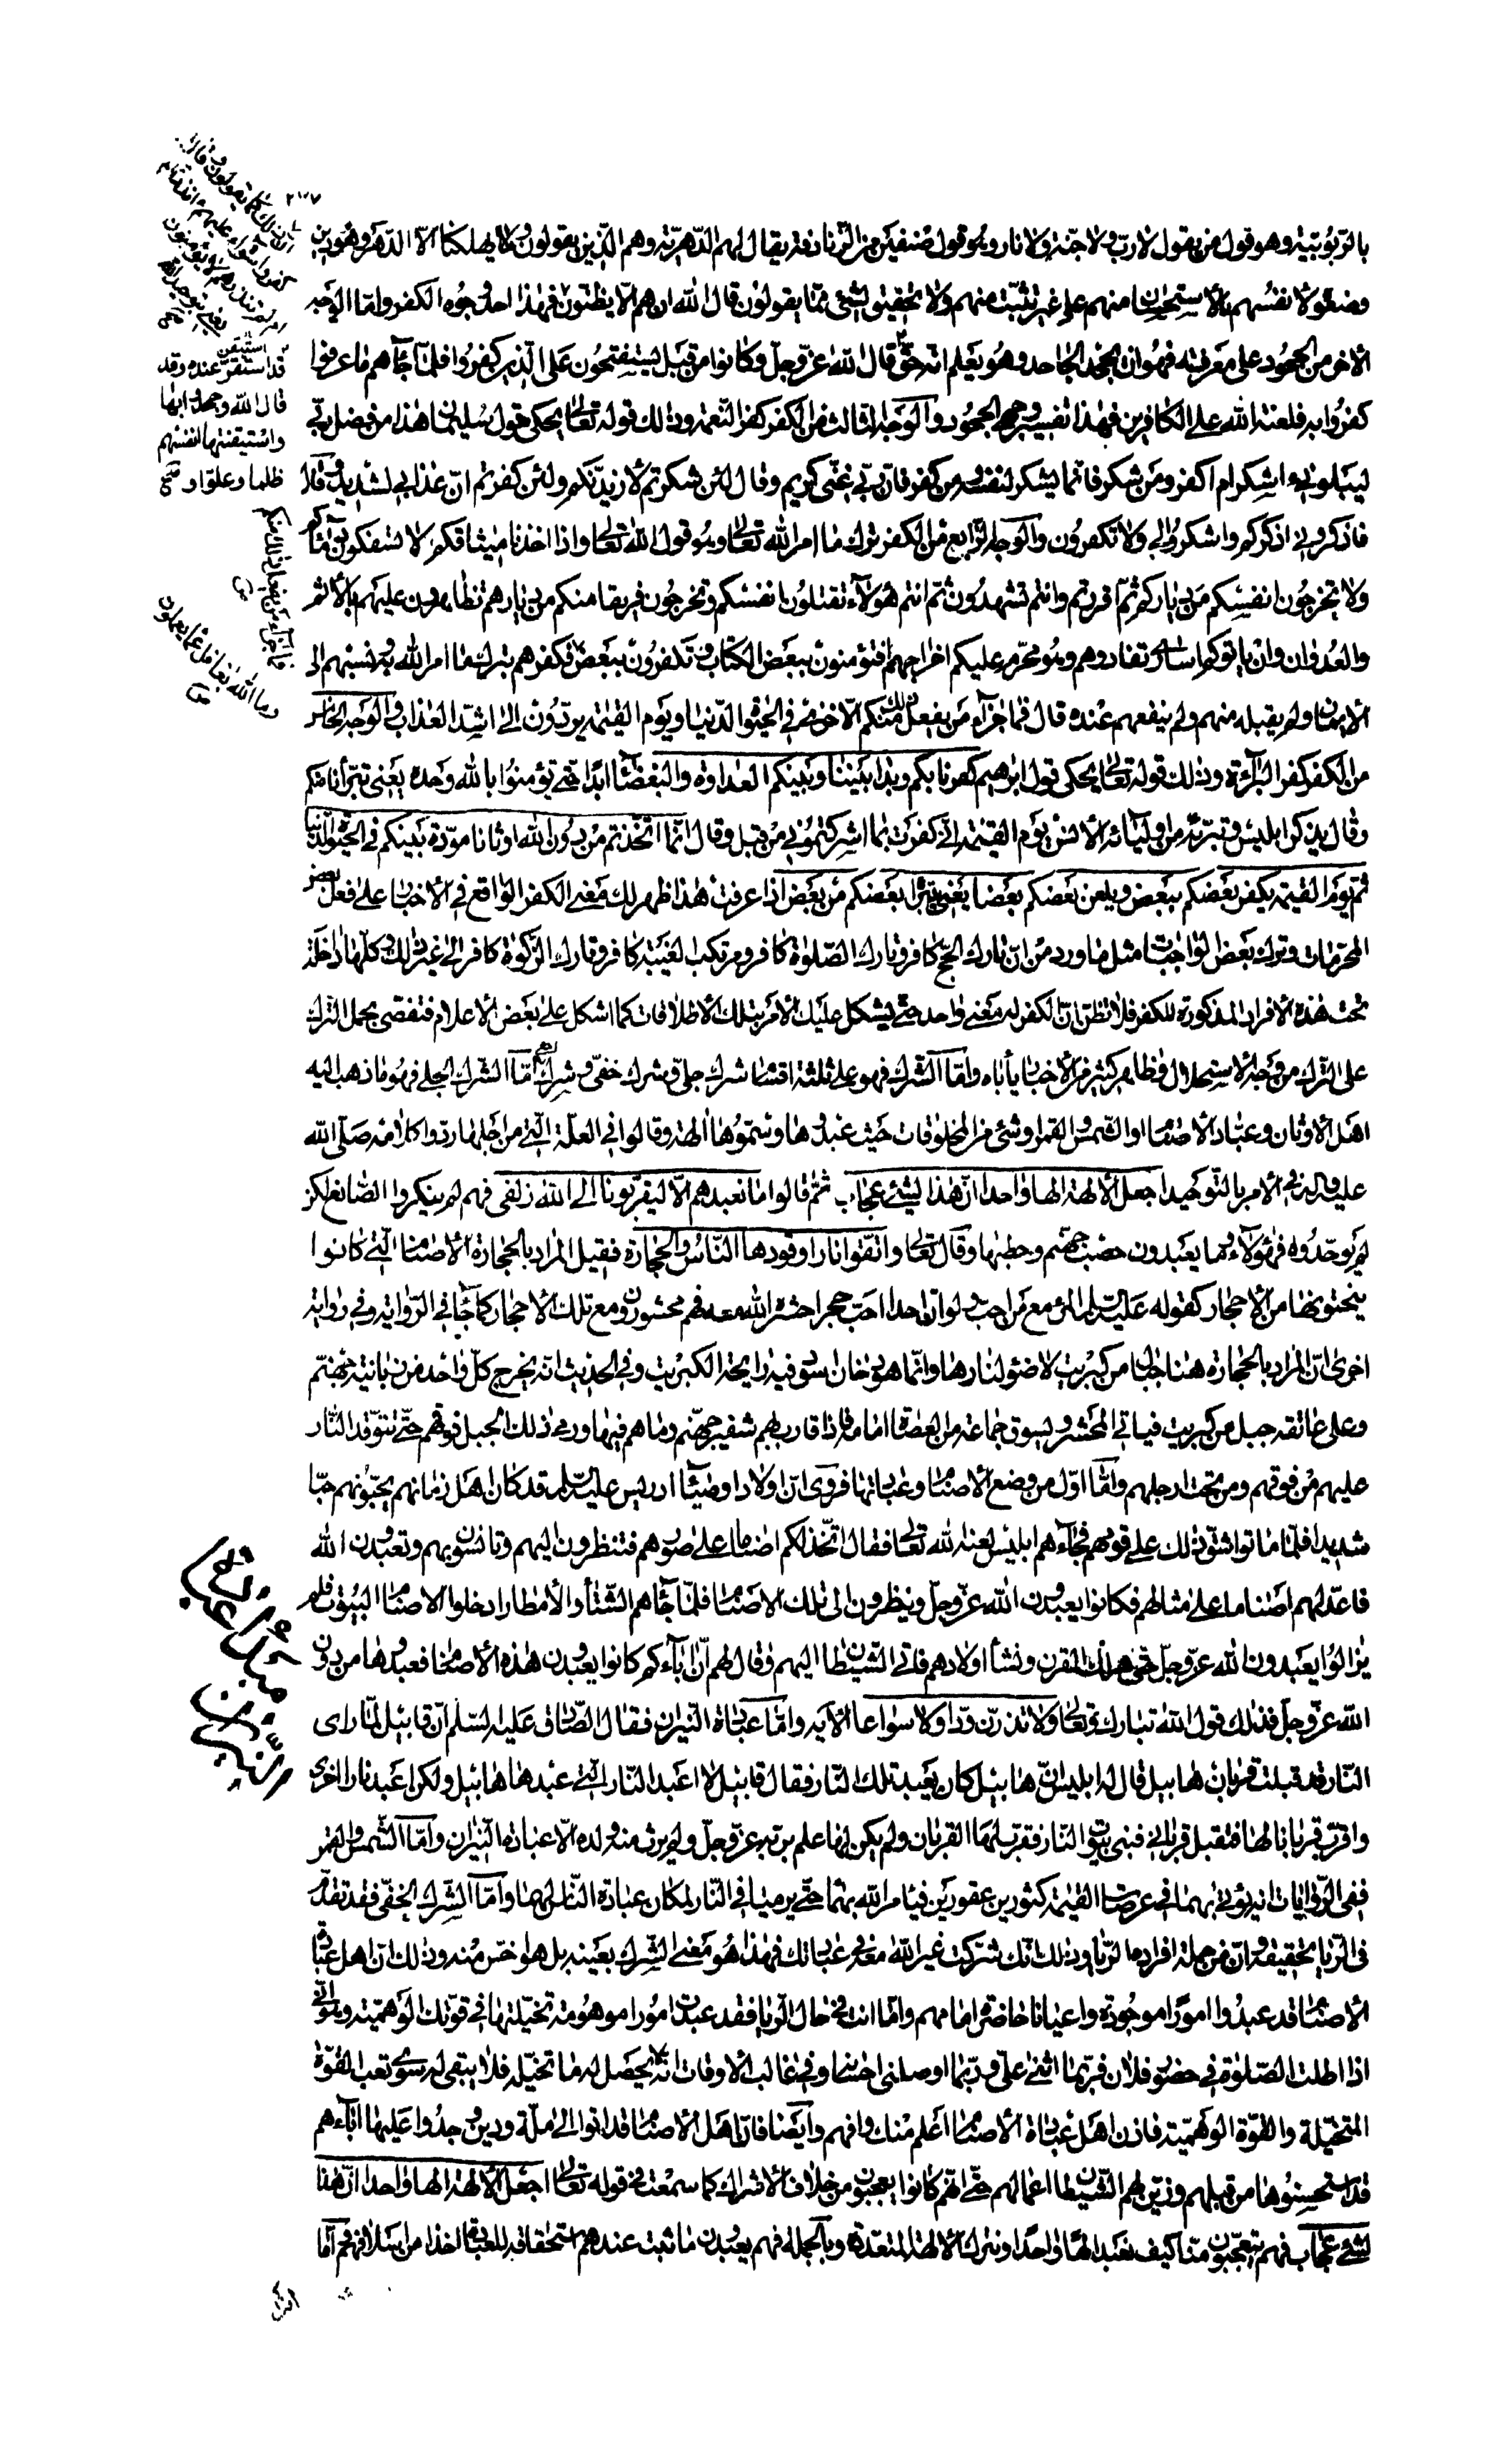 بالربوبية وهو قول من يقول لا رب ولا جنة ولا نار وهو قول صنفين من الزنادقة يقال لهم الدهرية وهم الذين يقولون وما يهلكنا الا الدهر وهو دين
وضعوه لانفسهم بالاستحسان منهم على غير تثبت منهم ولا تحقيق لشئ مما يقولون قال الله ان هم الا يظنون فهذا احد وجوه الكفر واما الوجه
الاخر من الجحود على معرفته فهو ان يجحد الجاحد وهو يعلم انه حق قال الله عز وجل وكانوا من قبل يستفتحون على الذين كفروا فلما جاءهم ما عرفوا
كفروا به فلعنة الله على الكافرين فهذا تفسير وجهي الجحود والوجه الثالث من الكفر كفر النعمة وذلك قوله تعالى يحكي قول سليمان هذا من فضل ربي
ليبلوني ءاشكر ام اكفر ومن شكر فانما يشكر لنفسه ومن كفر فان ربي غني كريم وقال لئن شكرتم لازيدنكم ولئن كفرتم ان عذابي لشديد وقال
فاذكروني اذكركم واشكروا لي ولا تكفرون والوجه الرابع من الكفر ترك ما امر الله تعالى وهو قول الله تعالى واذا اخذنا ميثاقكم لا تسفكون دمائكم
ولا تخرجون انفسكم من دياركم ثم اقررتم وانتم تشهدون ثم انتم هؤلاء تقتلون انفسكم وتخرجون فريقا منكم من ديارهم تظاهرون عليهم بالاثم
والعدوان وان ياتوكم اسارى تفادوهم وهو محرم عليكم اخراجهم افتؤمنون ببعض الكتاب وتكفرون ببعض فكفرهم بترك ما امر الله به ونسبهم الى
الايمان ولم يقبله منهم ولم ينفعهم عنده قال فما جزاء من يفعل ذلك منكم الا خزي في الحيوة الدنيا ويوم القيمة يردون الى اشد العذاب والوجه الخامس
من الكفر كفر البراءة وذلك قوله تعالى يحكي قول ابرهيم كفرنا بكم وبدا بيننا وبينكم العداوة والبغضاء ابدا حتى تؤمنوا بالله وحده يعني تبرأنا منكم
وقال يذكر ابليس وتبريه من اوليائه الانس يوم القيمة اني كفرت بما اشركتموني من قبل وقال انما اتخذتم من دون الله اوثانا مودة بينكم في الحيوة الدنيا
ثم يوم القيمة يكفر بعضكم ببعض ويلعن بعضكم بعضا يعني يتبرأ بعضكم من بعض اذا عرفت هذا ظهر لك معنى الكفر الواقع في الاخبار على فعل بعض
المحرمات وترك بعض الواجبات مثل ما ورد من ان تارك الحج كافر وتارك الصلوة كافر ومرتكب الغيبة كافر وتارك الزكوة كافر الى غير ذلك وكلها داخلة
تحت هذه الافراد المذكورة للكفر فلا تظن ان الكفر له معنى واحد حتى يشكل عليك الامر بتلك الاطلاقات كما اشكل على بعض الاعلام فتفصى بحمل الترك
على الترك من وجه الاستحلال وظاهر كثير من الاخبار يأباه واما الشرك فهو على ثلثة اقسام شرك جلي وشرك خفي وشرك اما الشرك الجلي فهو ما ذهب اليه
اهل الاوثان وعباد الاصنام او الشمس والقمر او شئ من المخلوقات حيث عبدوها وسموها الهة وقالوا في العلة التي من اجلها ردوا كلامه صلى الله
عليه واله في الامر بالتوحيد اجعل الالهة الها واحدا ان هذا لشئ عجاب ثم قالوا ما نعبدهم الا ليقربونا الى الله زلفى فهم لم ينكروا الصانع لكن
لم يوحدوه فهؤلاء وما يعبدون حصب جهنم وحطبها وقال تعالى واتقوا نارا وقودها الناس والحجارة فقيل المراد بالحجارة الاصنام التي كانوا
ينحتونها من الاحجار كقوله عليه السلام المرئ مع من احب ولو ان احدا احب حجرا حشره الله معه فهم محشورون مع تلك الاحجار كما جاء في الرواية وفي رواية
اخرى ان المراد بالحجارة هنا جبال من كبريت لا ضوء لنارها وانما هو دخان اسود فيه رايحة الكبريت وفي الحديث انه يخرج كل واحد من زبانية جهنم
وعلى عاتقه جبل من كبريت فياتي المحشر ويسوق جماعة من العصاة امامه فاذا قاربهم شفير جهنم رماهم فيها ورمى ذلك الجبل فوقهم حتى تتوقد النار
عليهم من فوقهم ومن تحت ارجلهم واما اول من وضع الاصنام وعبادتها فروى ان اولاد اوصياء ادريس عليه السلام قد كان اهل زمانهم يحبونهم حبا
شديدا فلما ماتوا اشتد ذلك على قومهم فجاءهم ابليس لعنه الله تعالى فقال اتخذ لكم اصناما على صورهم فتنظرون اليهم وتانسون بهم وتعبدون الله
فاعد لهم اصناما على مثالهم فكانوا يعبدون الله عز وجل وينظرون الى تلك الاصنام فلما جاءهم الشتاء والامطار ادخلوا الاصنام البيوت فلم
يزالوا يعبدون الله عز وجل حتى هلك القرن ونشأ اولادهم فاتى الشيطان اليهم وقال لهم ان آباءكم كانوا يعبدون هذه الاصنام فعبدوها من دون
الله عز وجل فذلك قول الله تبارك وتعالى ولا تذرن ودا ولا سواعا الاية واما عبادة النيران فقال الصادق عليه السلام ان قابيل لما راى
النار قد قبلت قربان هابيل قال له ابليس ان هابيل كان يعبد تلك النار فقال قابيل لا اعبد النار التي عبدها هابيل ولكن اعبد نارا اخرى
واقرب قربانا لها فتقبل قرباني فبنى بيوت النار فقرب لها القربان ولم يكن لها علم بربه عز وجل ولم يرث منه ولده الا عبادة النيران واما الشمس والقمر
ففي الروايات انه يؤتى بهما في عرصات القيمة كثورين عقورين فيامر الله بهما حتى يرميا في النار لمكان عبادة الناس لهما واما الشرك الخفي فقد تقدم
في الريا تحقيقه وان من جملة افراده الريا وذلك انك شركت غير الله معه في عباداتك فهذا هو معنى الشرك بعينه بل هو اخس منه وذلك ان اهل عبادة
الاصنام قد عبدوا امورا موجودة واعيانا حاضرة امامهم واما انت في حال الريا فقد عبدت امورا موهومة تخيلتها في قوتك الوهمية وهو اني
اذا اطلت الصلوة في حضور فلان فربما اثنى علي وربما اوصلني احسانا وفي غالب الاوقات انه لا يحصل له ما تخيله فلا يبقى له سوى تعب القوة
المتخيلة والقوة الوهمية فاذن اهل عبادة الاصنام اعلم منك وافهم وايضا فان اهل الاصنام قد انوا الى ملة ودين وجدوا عليها اباءهم
قد استحسنوها من قبلهم وزين لهم الشيطان اعمالهم حتى انهم كانوا يعجبون من خلاف الاشراك كما سمعت في قوله تعالى اجعل الالهة الها واحدا ان هذا
لشئ عجاب فهم يتعجبون منا كيف نعبد الها واحدا ونترك الالهة المتعددة وبالجملة فهم يعبدون ما ثبت عندهم استحقاقه للعبادة اخذا من اسلافهم واما
ان ذلك كما يقولون وقال
كفروا سواء عليهم ءانذرتهم
ام لم تنذرهم لا يؤمنون
يعني بتوحيد الله
قد استقر عنده وقد
قال الله وجحدوا بها
واستيقنتها انفسهم
ظلما وعلوا
فما جزاء من يفعل ذلك منكم
وما الله بغافل عما يعملون